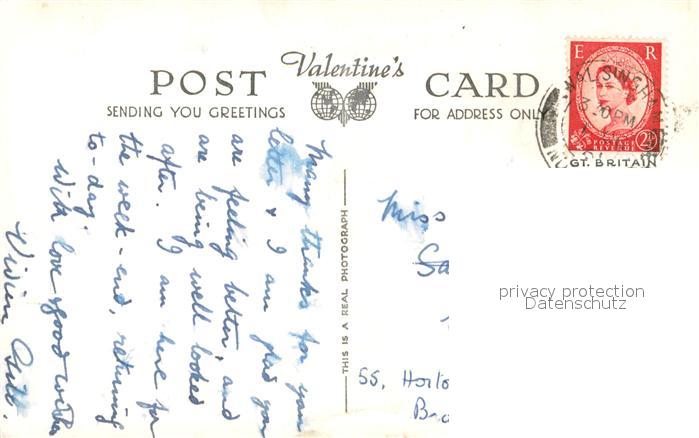 POST Valentine's CARD
SENDING YOU GREETINGS
FOR ADDRESS ONLY
E R
POSTAGE
REVENUE
2½
GT. BRITAIN
WALSINGHAM
PM
THIS IS A REAL PHOTOGRAPH
Many thanks for your
letter & I am glad you
are feeling better, and
are being well looked
after. I am here for
the week-end, returning
to-day.
With love & good wishes
Vivien
Miss
55, Horto
privacy protection
Datenschutz